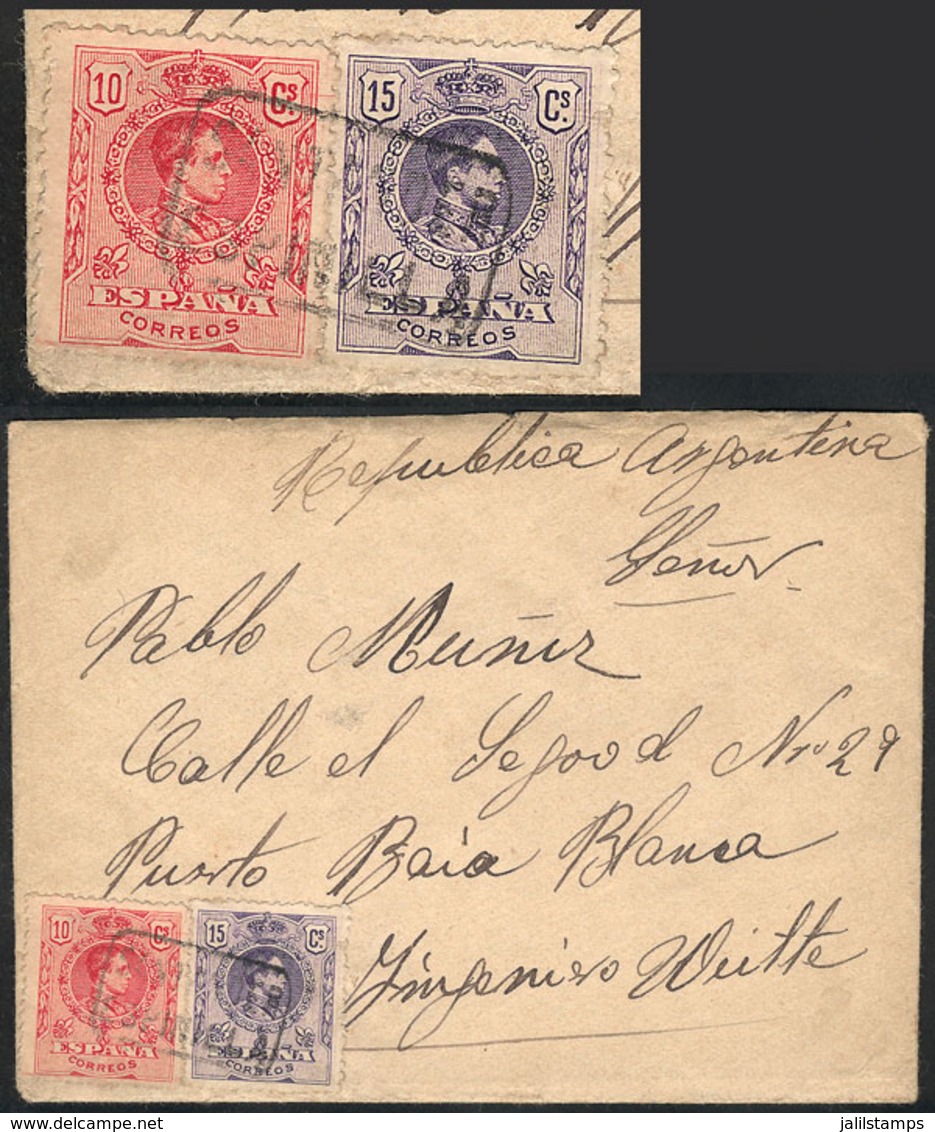 10 Cs. 15 Cs.
SEVILLA
ESPAÑA ESPAÑA
CORREOS CORREOS
Republica Argentina
Señor
Pablo Muñiz
Calle el Segood Nro 29
Puerto Baia Blanca
Yingeniero Weitte
10 Cs. 15 Cs.
SEVILLA
ESPAÑA ESPAÑA
CORREOS CORREOS
jalilstamps